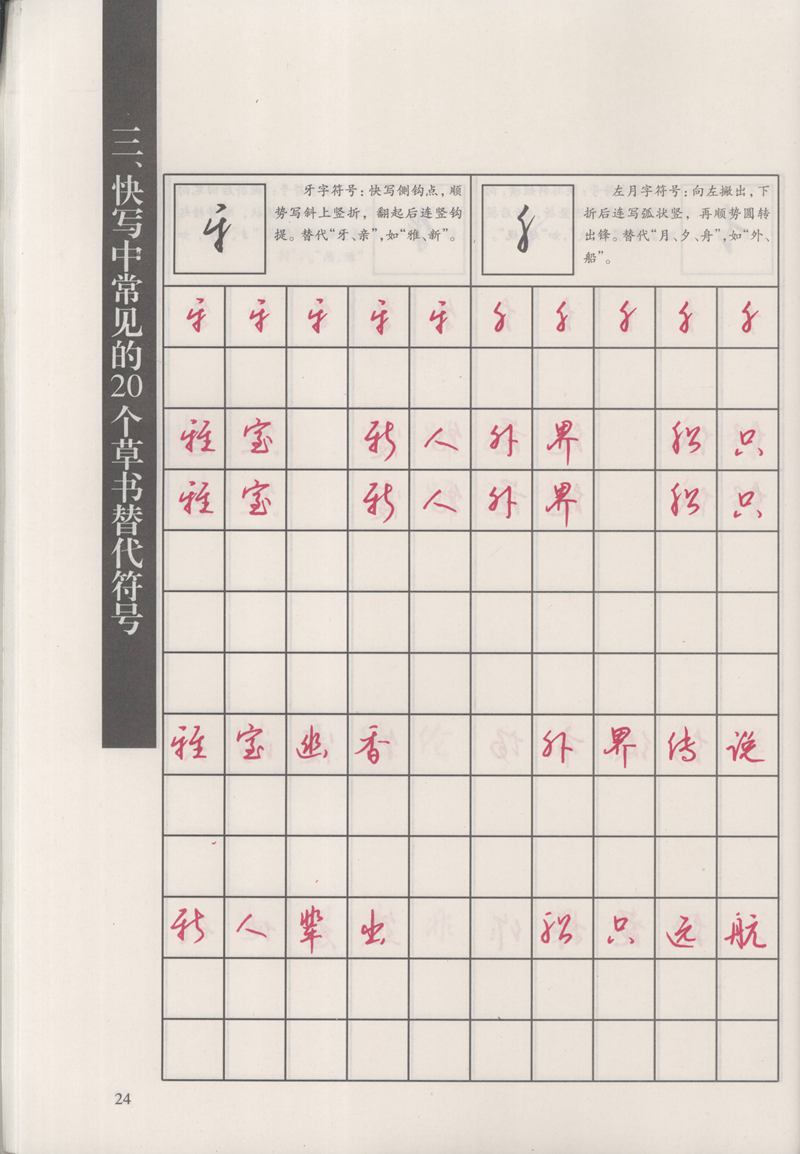 三、快写中常见的20个草书替代符号
牙字符号：快写侧钩点，顺
势写斜上竖折，翻起后连竖钩
提。替代“牙、亲”，如“雅、新”。
左月字符号：向左撇出，下
折后连写弧状竖，再顺势圆转
出锋。替代“月、夕、舟”，如“外、
船”。
雅室 新人外界 船只
雅室 新人外界 船只
雅室幽香 外界传说
新人辈出 船只远航
24